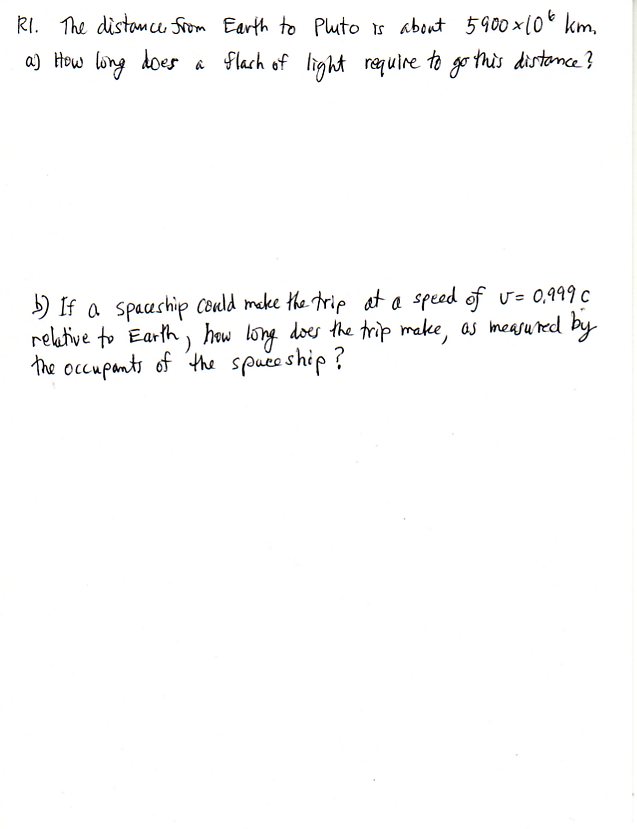 R1. The distance from Earth to Pluto is about 5900×10⁶ km.
a) How long does a flash of light require to go this distance?
b) If a spaceship could make the trip at a speed of v = 0.999 c
relative to Earth, how long does the trip make, as measured by
the occupants of the spaceship?